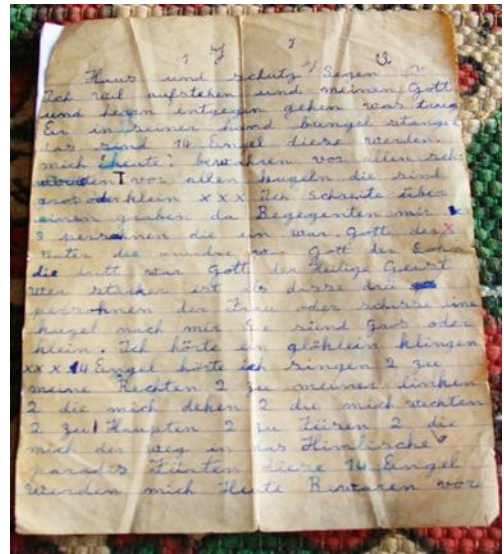 Haus und schutz Segen
Ich wil aufstehen und meinen Gott
und herrn entgegen gehen was trug
Er in seiner hand bungel stangel
das sind 14 Engel diese werden
mich heute bewahren vor allen
vor allen kugeln die sind
gros oder klein x x x Ich schreite über
einen graben da Begegenten mir
3 personen die ein war Gott der
vater die andre war Gott der Sohn
die dritt war Gott der Heilige Geist
wer stärker ist als disse drei
persohnen der Frau oder schisse eine
kugel nach mir Sie siend Gros oder
klein. Ich hörte ein glöklein klingen
xx x 14 Engel hörte ich singen 2 zu
meine Rechten 2 zu meiner linken
2 die mich deken 2 die mich wechten
2 zu Haupten 2 zu Füsen 2 die
mich der weg in das Himlische
paradis Fürten diese 14 Eengel
werden mich Heute Bewaren vor